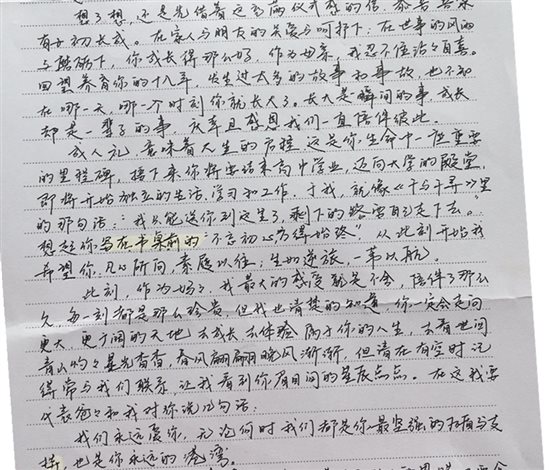 想了想，还是先借着这高两仪式感的信，恭喜吾儿
有女初长成。在家人与朋友的关爱与呵护下；在世事的风雨
与磨砺下，你成长得那么好，作为母亲，我忍不住沾沾自喜。
回望养育你的十八年，发生过太多的故事和事故，也不知
在哪一天，哪一个时刻你就长大了。长大是瞬间的事，成长
却是一辈子的事，庆幸且感恩我们一直陪伴彼此。
成人礼，意味着人生的启程，这是你生命中一段重要
的里程碑，接下来你将要结束高中学业，迈向大学的殿堂，
即将开始独立的生活、学习和工作。于我，就像《千与千寻》里
的那句话：“我只能送你到这里了，剩下的路要自己走下去。”
想起你写在书桌前的“不忘初心，方得始终”，从此刻开始我
希望你，凡心所向，素履以往；生如逆旅，一苇以航。
此刻，作为妈妈，我最大的感受就是不舍，陪伴了那么
久，每一刻都是那么珍贵，但我也清楚的知道，你一定会走向
更大、更广阔的天地，去成长，去体验属于你的人生，去看世间
青山灼灼星光杳杳，春风翩翩晚风渐渐，但请在有空时记
得常与我们联系，让我看到你眉目间的星辰点点。在这我要
代表爸爸和我对你说几句话：
我们永远爱你，无论何时我们都是你最坚强的后盾与支
撑，也是你永远的港湾。